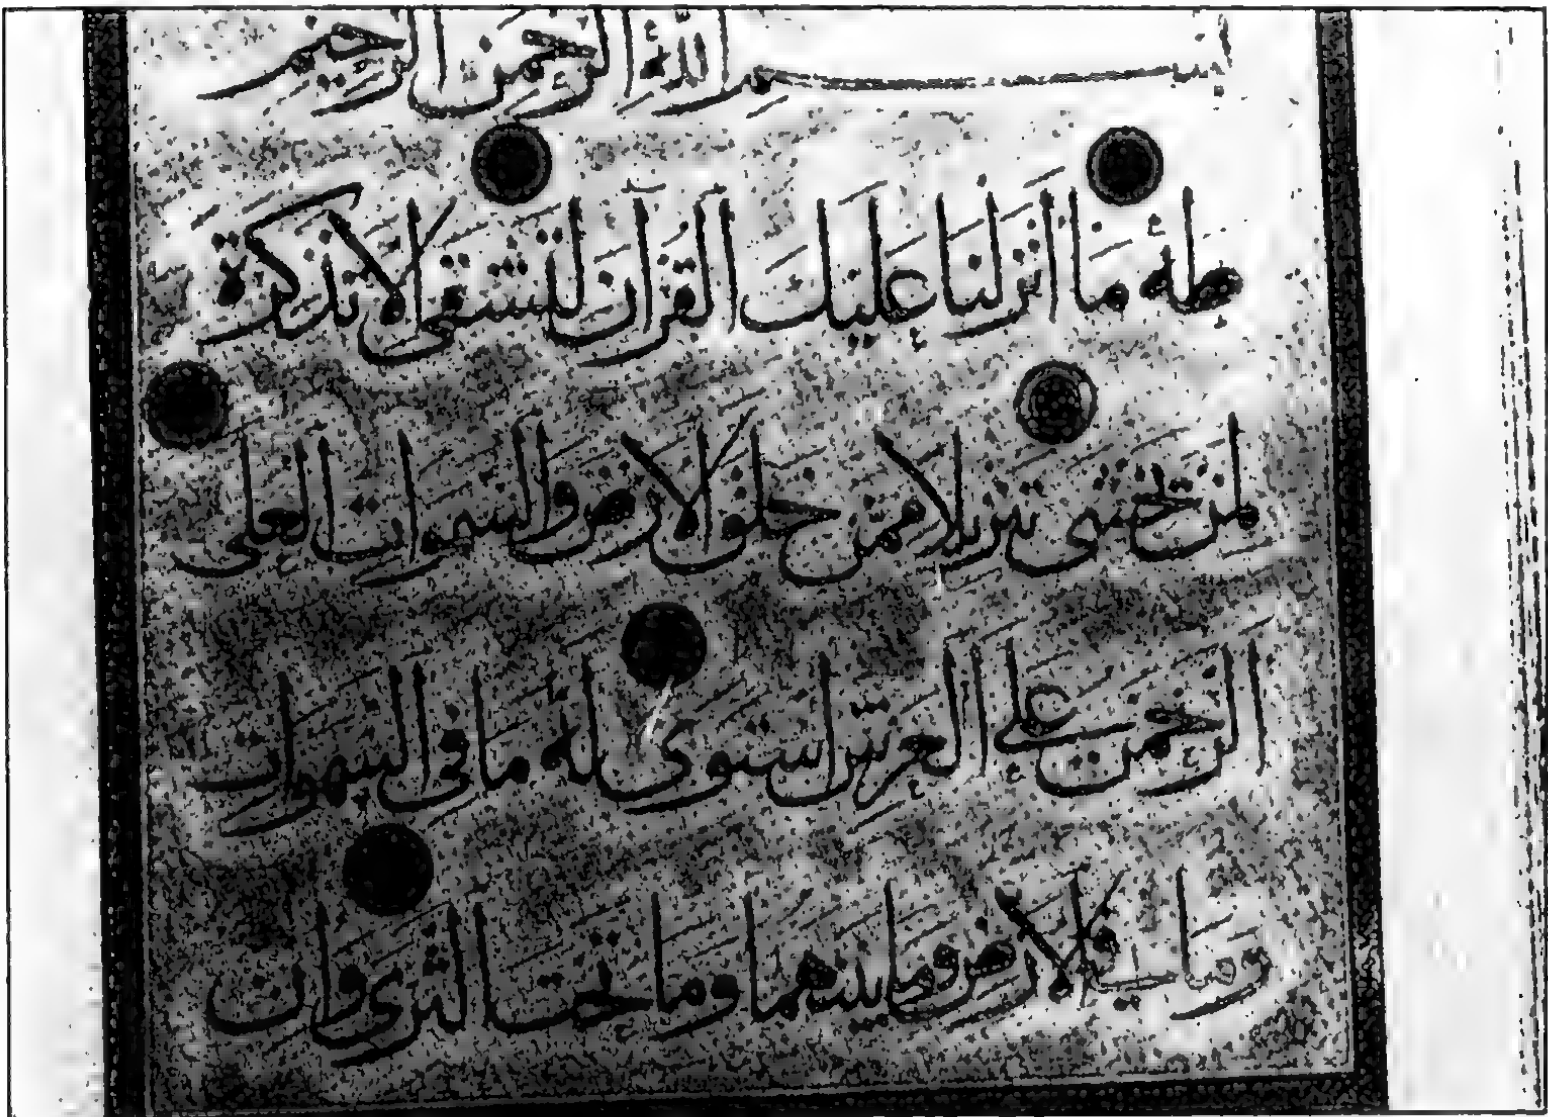 بسم الله الرحمن الرحيم
طه ما أنزلنا عليك القرآن لتشقى إلا تذكرة
لمن يخشى تنزيلا ممن خلق الارض والسموات العلى
الرحمن على العرش استوى له ما فى السموات
وما في الارض وما بينهما وما تحت الثرى وان